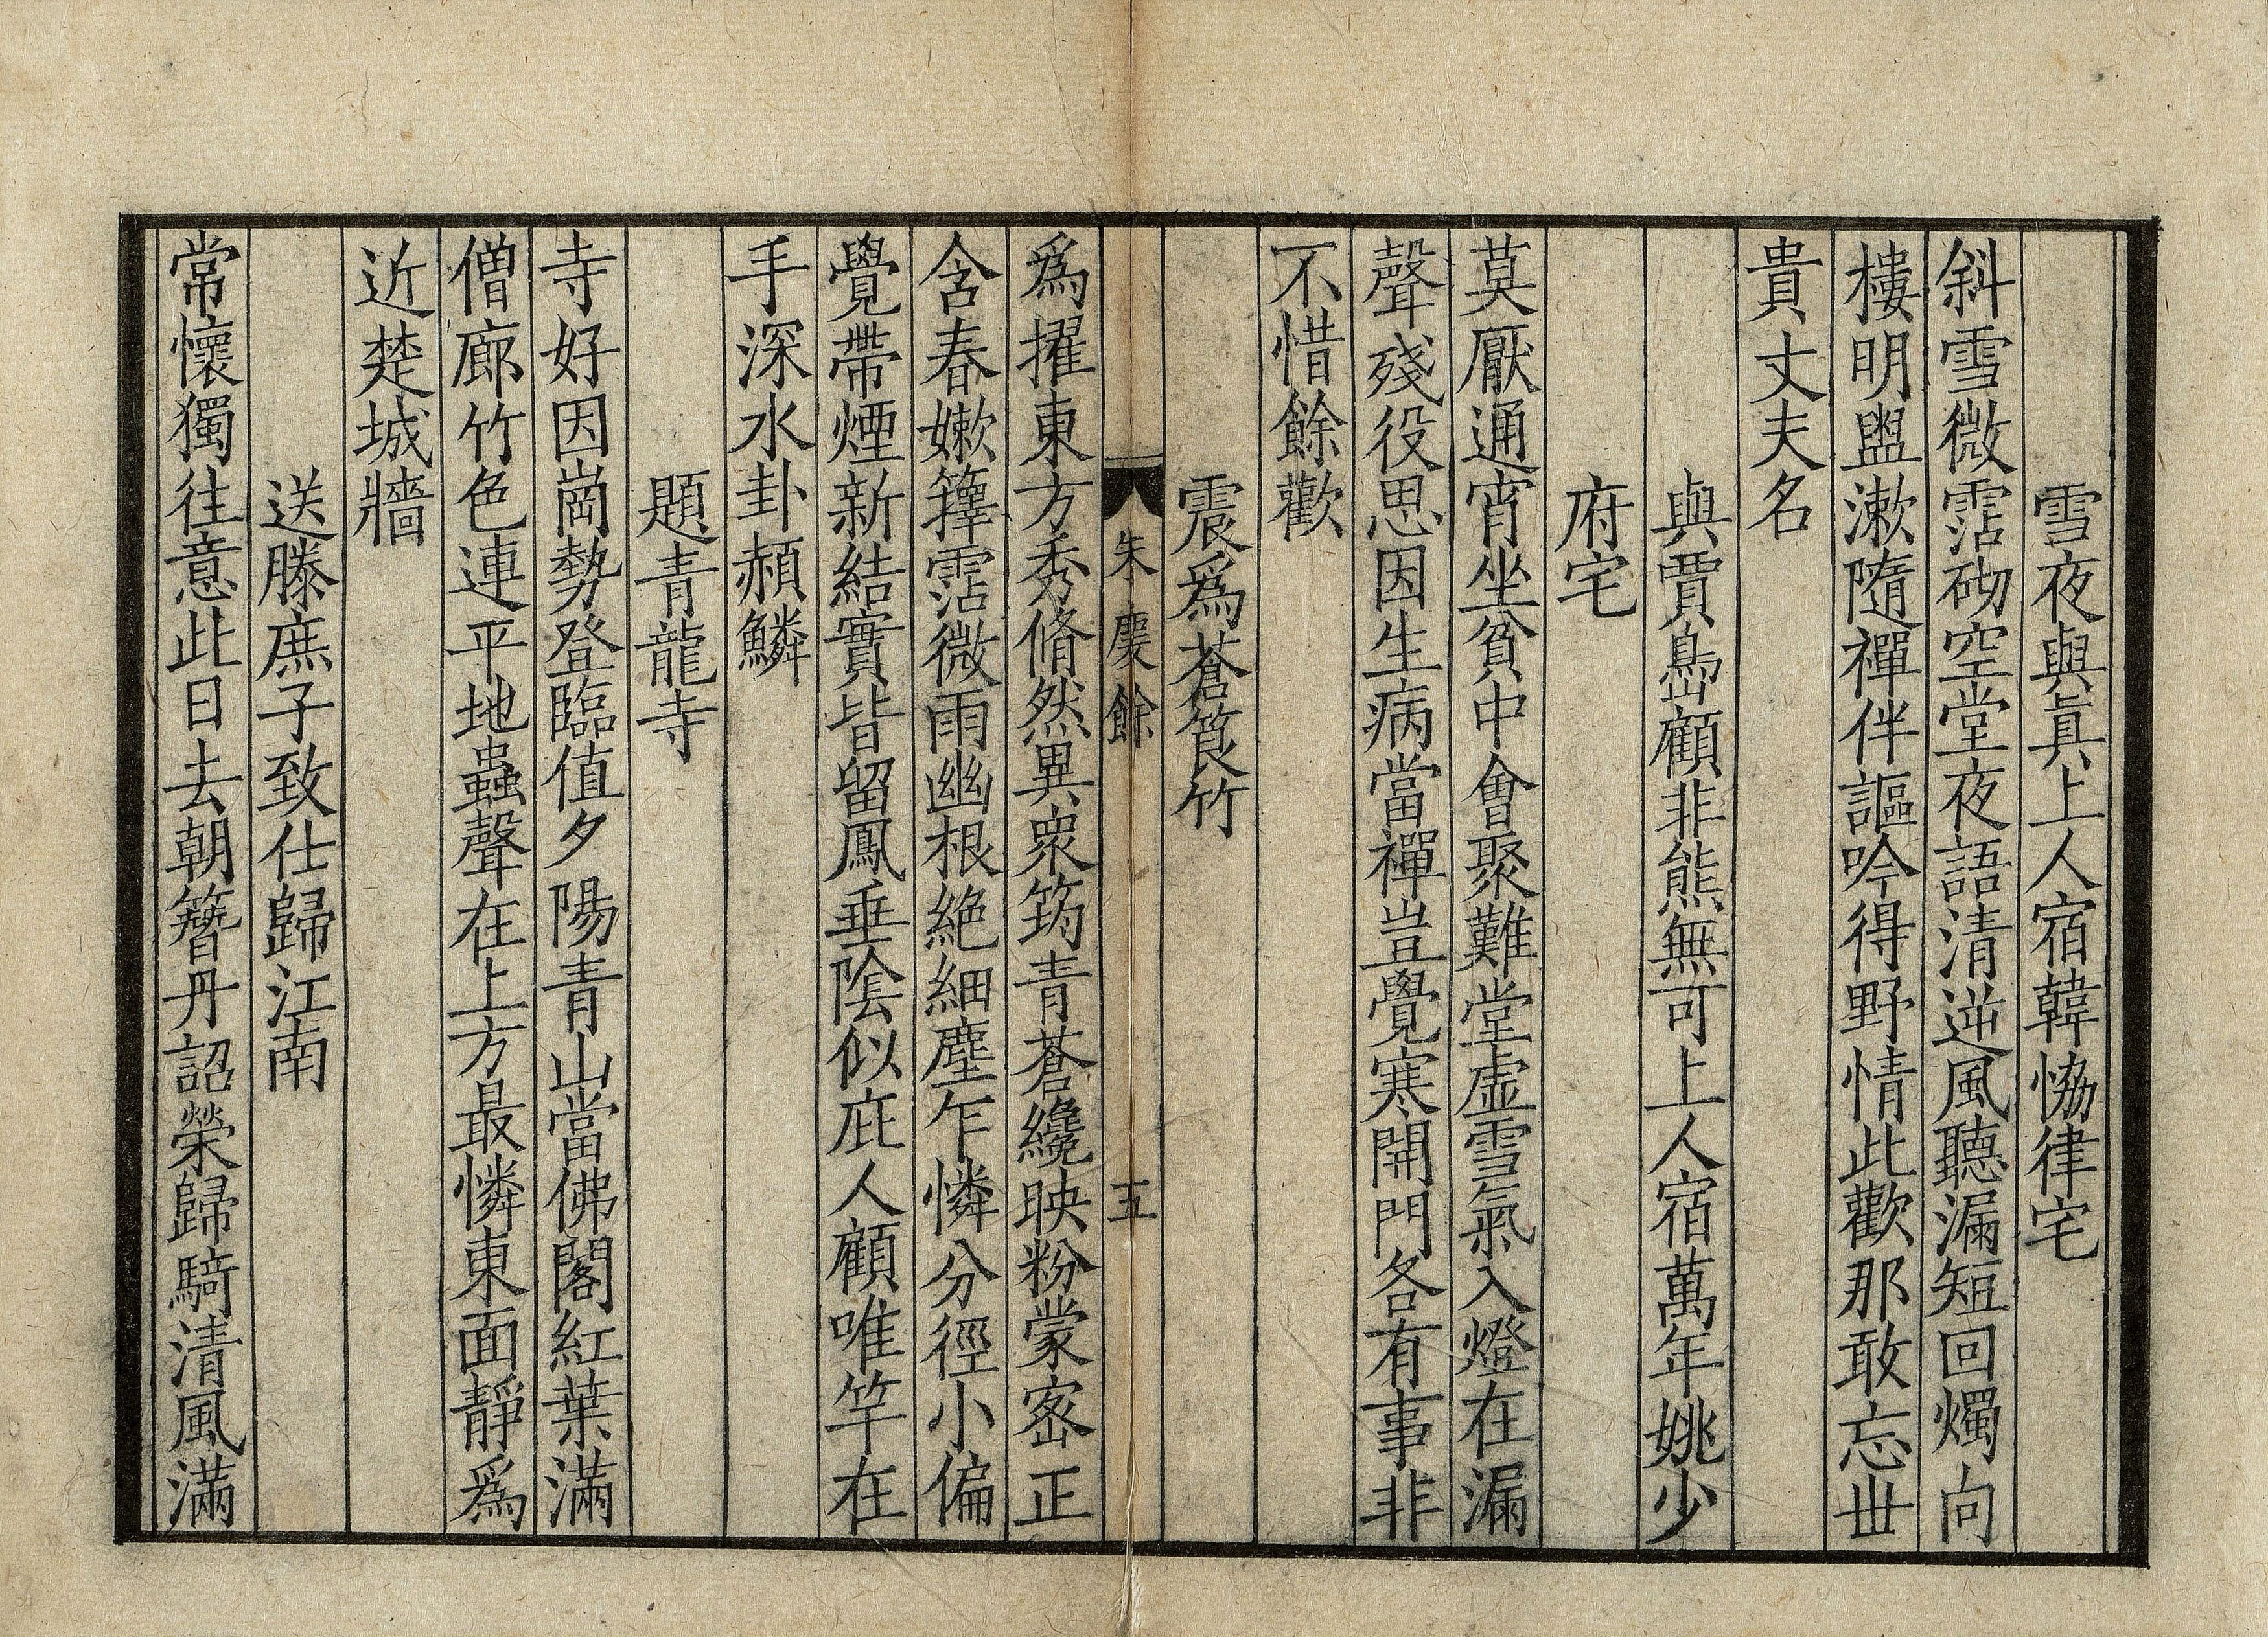 雪夜與眞上人宿韓恊律宅
斜雪微霑砌空堂夜語清逆風聽漏短回燭向
樓明盥漱隨禪伴謳吟得野情此歡那敢忘丗
貴丈夫名
與賈島顧非熊無可上人宿萬年姚少
府宅
莫厭通宵坐貧中會聚難堂虛雪氣入燈在漏
聲殘役思因生病當禪豈覺寒開門各有事非
不惜餘歡
震爲蒼筤竹
朱慶餘
五
爲擢東方秀脩然異衆筠青蒼纔映粉蒙宻正
含春嫩籜霑微雨幽根絶細塵乍憐分徑小偏
覺帶煙新結實皆留鳳垂陰似庇人顧唯竿在
手深水卦頳鱗
題青龍寺
寺好因崗勢登臨值夕陽青山當佛閣紅葉滿
僧廊竹色連平地蟲聲在上方最憐東面靜爲
近楚城牆
送滕庶子致仕歸江南
常懷獨往意此日去朝簮丹詔榮歸騎清風滿